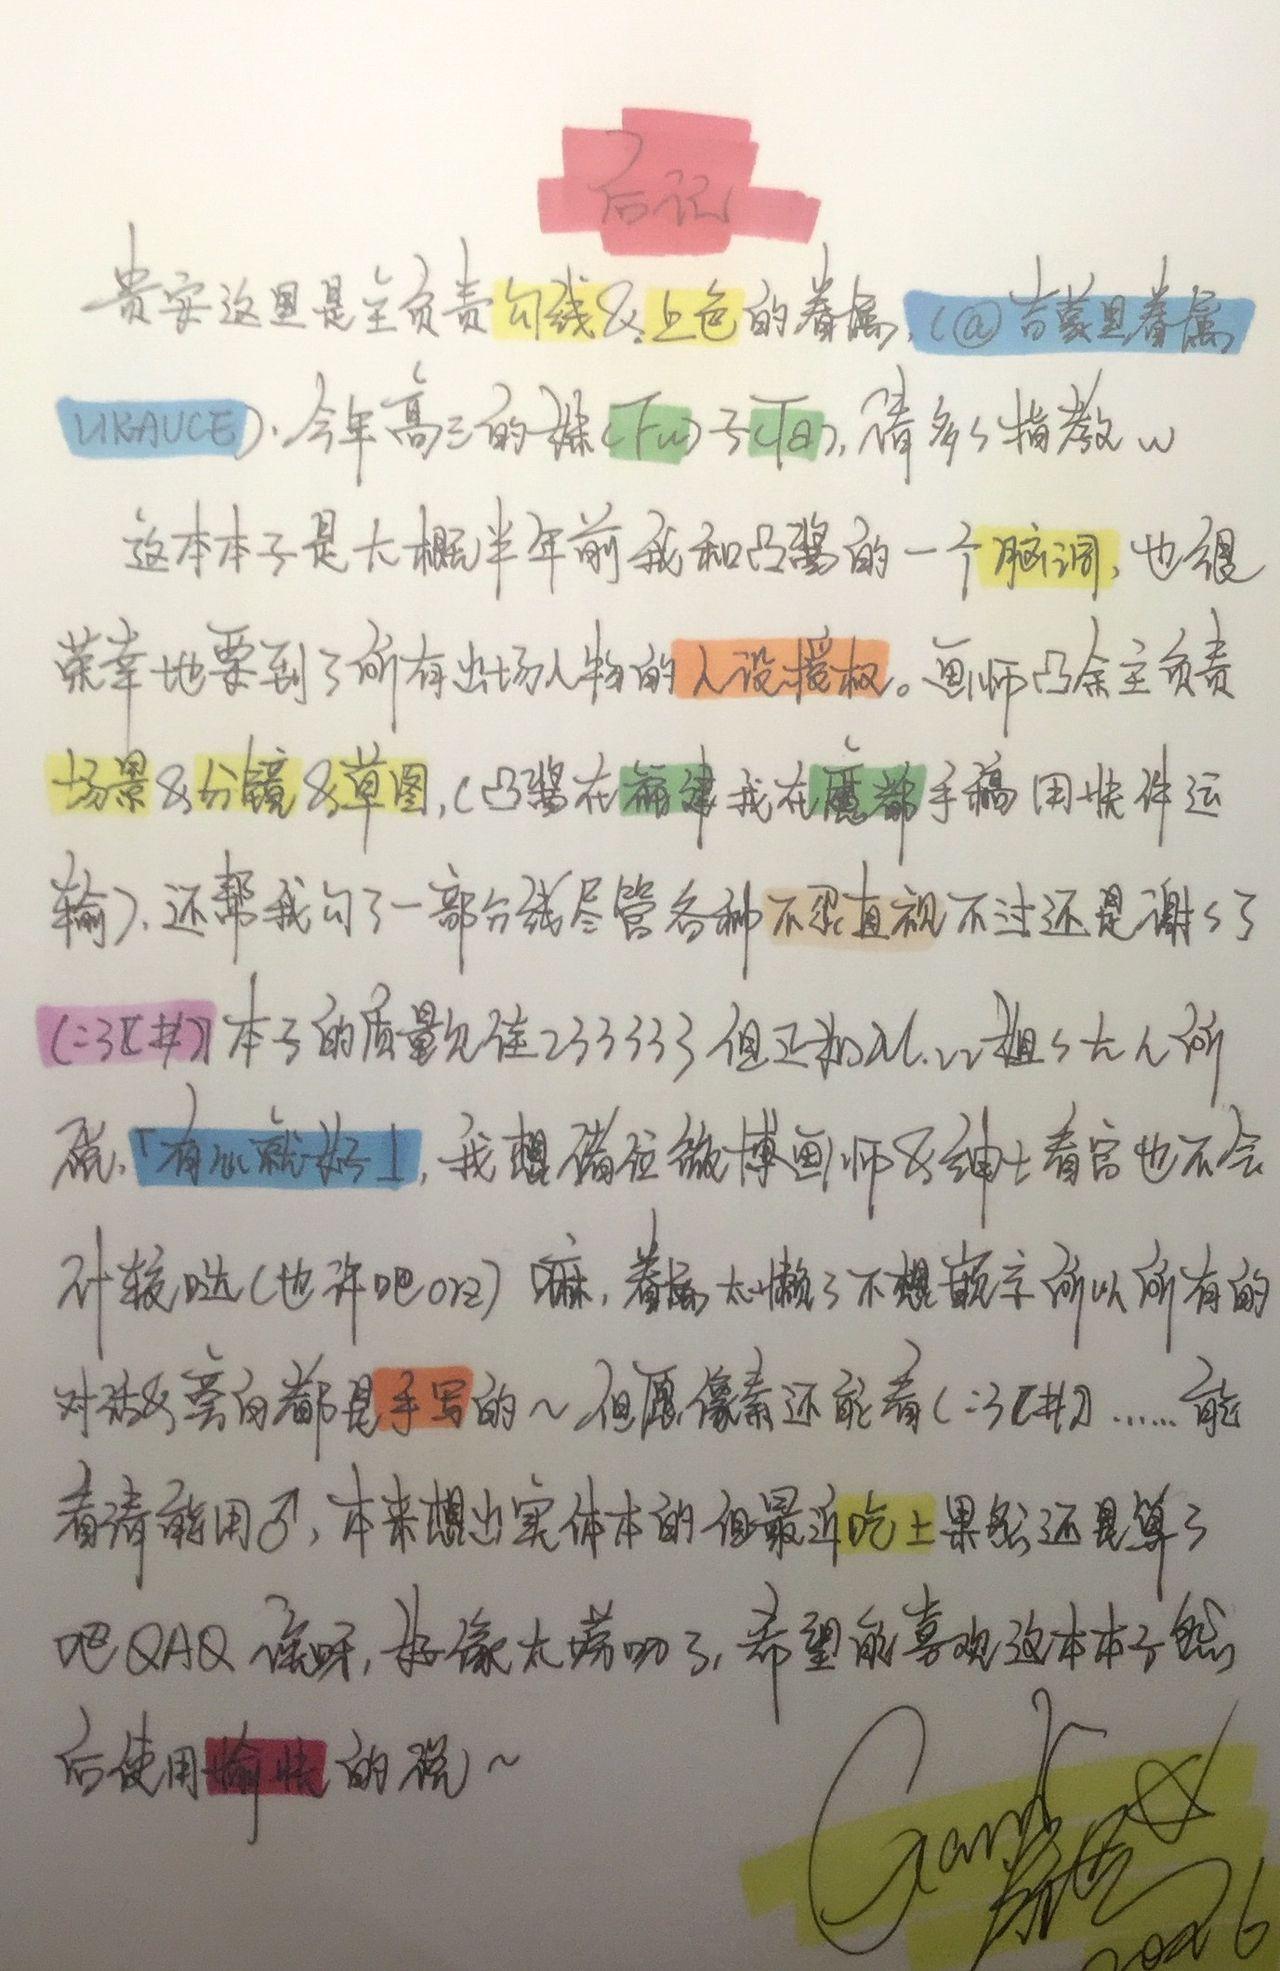 后记
贵安这里是主负责勾线&上色的眷属,(@吉蒙里眷属
UKAUCE).今年高三的妹(Fu)子(Ta),请多々指教w
这本本子是大概半年前我和凸酱的一个脑洞,也很
荣幸地要到了所有出场人物的人设授权。画师凸余主负责
场景&分镜&草图,(凸酱在福建我在魔都手稿用快件运
输).还帮我勾了一部分线尽管各种不忍直视不过还是谢々了
(:3[#]本子的质量欠佳233333但正如M.22姐々大人所
说,「有心就好」,我想诸位微博画师&绅士看官也不会
计较哒(也许吧orz)嘛,眷属太懒了不想嵌字所以所有的
对话&旁白都是手写的~但愿像素还能看(:3[#]……能
看请能用♂,本来想出实体本的但最近吃土果然还是算了
吧QAQ 诶呀,好像太唠叨了,希望能喜欢这本本子然
后使用愉快的说~